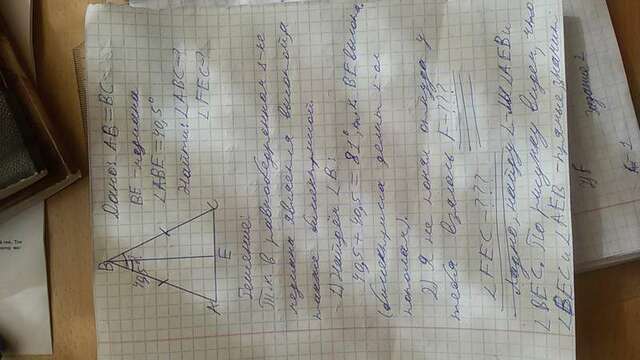 B
40,5°
A
E
C
Дано: AB = BC
BE - медиана
∠ABE = 40,5°
Найти: ∠ABC - ?
∠FEC - ?
Решение:
Т.к. в равнобедренном
медиана является высотой а
также биссектрисой
1) Найдём ∠B:
40,5 + 40,5 = 81°, т.к. BE высота
(биссектриса делит ∠
пополам).
2) Я не понял откуда у
тебя взялась F - ???
∠FEC - ???
Ладно, найду ∠AEB и
∠BEC. По рисунку видем, что
∠BEC и ∠AEB - прямые, значит
Задание 2